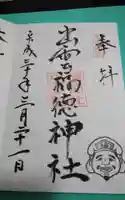 奉拝
出雲福徳神社
平成三十年三月二十一日